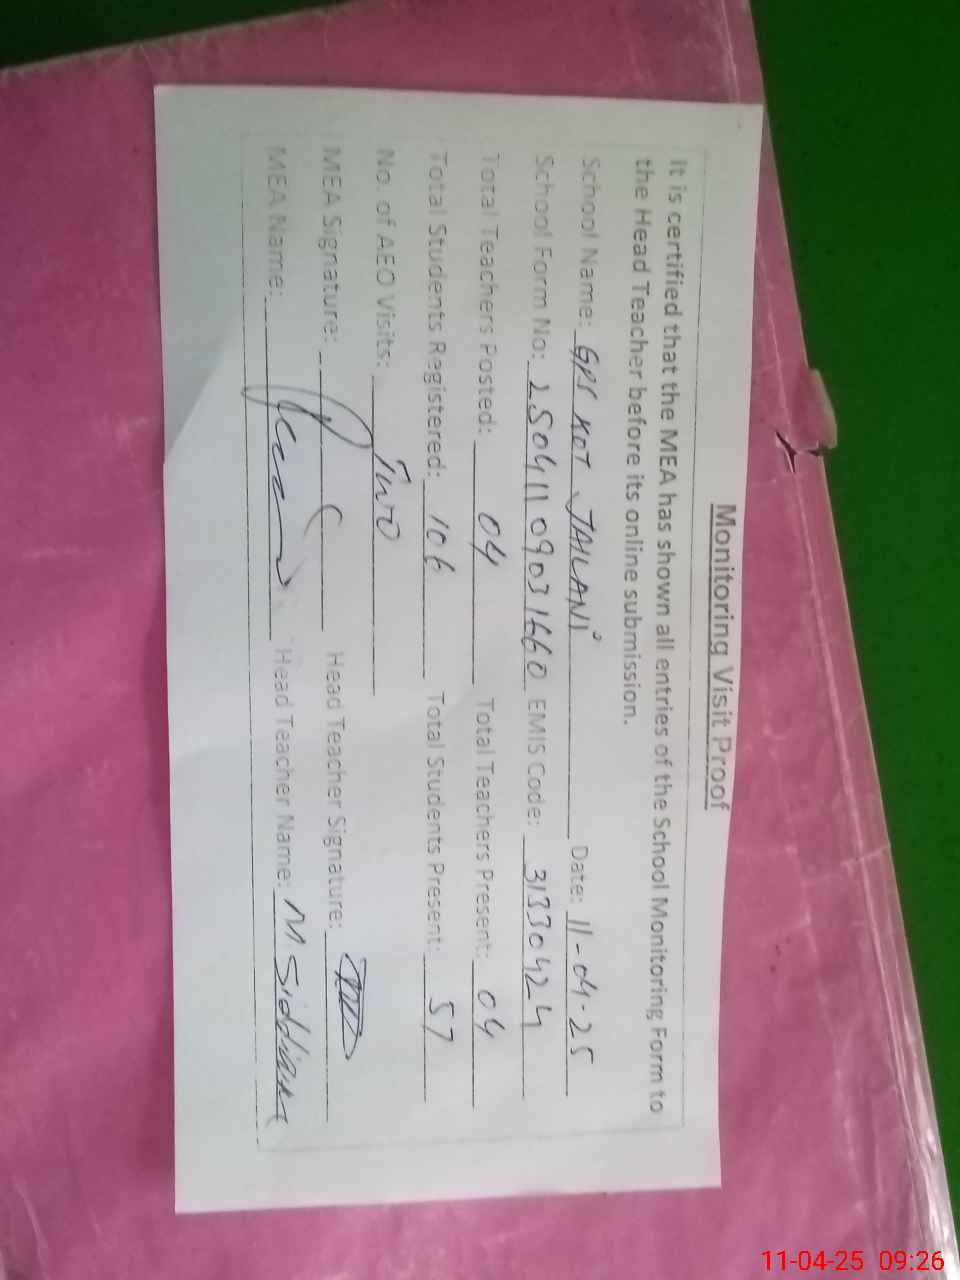 Monitoring Visit Proof
It is certified that the MEA has shown all entries of the School Monitoring Form to
the Head Teacher before its online submission.
School Name: GPS KOT JAILANI Date: 11-04-25
School Form No: 25041109031660 EMIS Code: 31330424
Total Teachers Posted: 04 Total Teachers Present: 04
Total Students Registered: 106 Total Students Present: 57
No. of AEO Visits: Two
MEA Signature: Head Teacher Signature:
MEA Name: Head Teacher Name: M
11-04-25 09:26